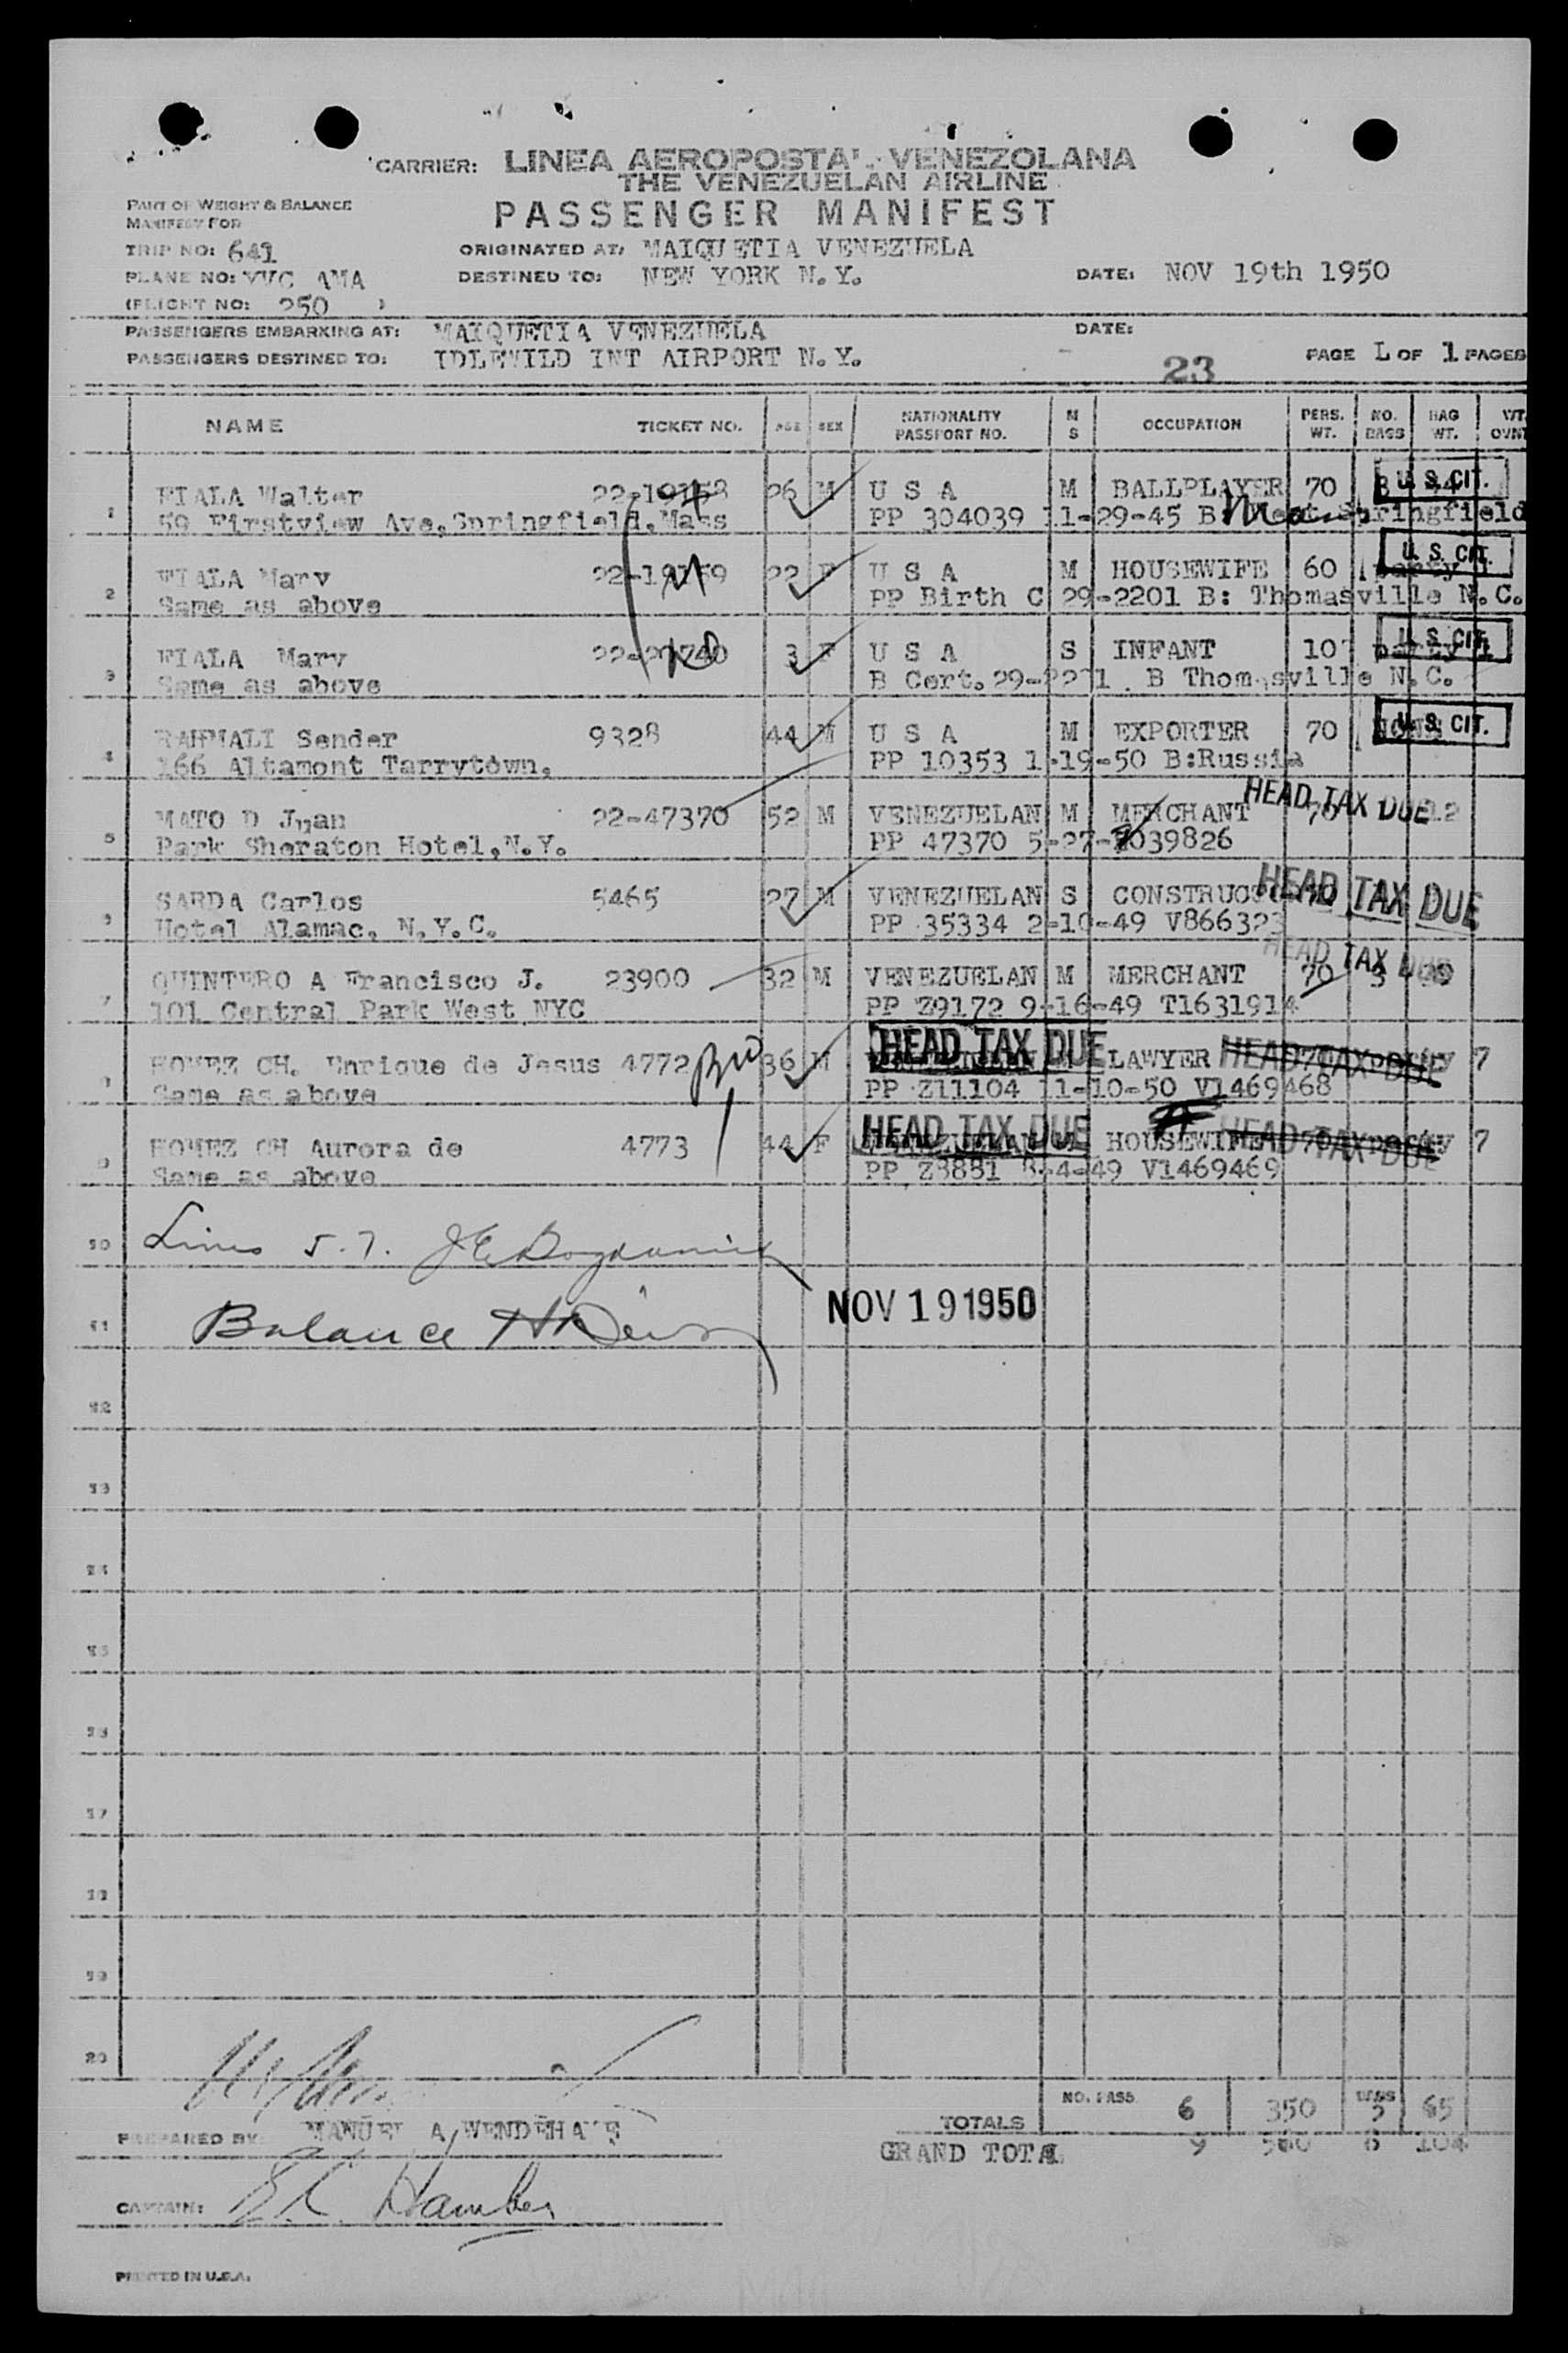 CARRIER: LINEA AEROPOSTAL VENEZOLANA
THE VENEZUELAN AIRLINE
PASSENGER MANIFEST
PART OF WEIGHT & BALANCE
MANIFEST FOR
TRIP NO: 641 ORIGINATED AT: MAIQUETIA VENEZUELA
PLANE NO: YVC AMA DESTINED TO: NEW YORK N.Y. DATE: NOV 19th 1950
(FLIGHT NO: 250 )
PASSENGERS EMBARKING AT: MAIQUETIA VENEZUELA DATE:
PASSENGERS DESTINED TO: IDLEWILD INT AIRPORT N.Y. 23 PAGE L OF 1 PAGES
NAME TICKET NO. AGE SEX NATIONALITY PASSPORT NO. M S OCCUPATION PERS. WT. NO. BAGS BAG WT. WT. OVNT
1 FIALA Walter 22-19158 26 M U S A M BALLPLAYER 70 U. S. CIT.
59 Firstview Ave,Springfield,Mass PP 304039 11-29-45 B: West Springfield
2 FIALA Mary 22-19159 22 F U S A M HOUSEWIFE 60 U. S. CIT.
Same as above PP Birth C 29-2201 B: Thomasville N.C.
3 FIALA Mary 22-20740 3 F U S A S INFANT 10 U. S. CIT.
Same as above B Cert. 29-2271 B Thomasville N.C.
4 Sender 9328 44 M U S A M EXPORTER 70 U. S. CIT.
166 Altamont Tarrytown. PP 10353 1-19-50 B:Russia
5 MATO D Juan 22-47370 52 M VENEZUELAN M MERCHANT 70 HEAD TAX DUE 12
Park Sheraton Hotel,N.Y. PP 47370 5-27- 039826
6 SARDA Carlos 5465 27 M VENEZUELAN S CONSTRUCS 70 HEAD TAX DUE
Hotel Alamac, N.Y.C. PP 35334 2-10-49 V866323
HEAD TAX DUE
7 QUINTERO A Francisco J. 23900 32 M VENEZUELAN M MERCHANT 70 3
101 Central Park West NYC PP Z9172 9-16-49 T1631914
HOMEZ CH. Enrique de Jesus 4772 36 M HEAD TAX DUE LAWYER HEAD TAX DUE 7
Same as above PP Z11104 11-10-50 V1469468
9 HOMEZ CH Aurora de 4773 44 F HEAD TAX DUE HOUSEWIFE HEAD TAX DUE 7
Same as above PP Z3881 8-4-49 V1469469
10 Lines 5.7.
11 Balance NOV 19 1950
12
13
14
15
17
18
19
20
NO. PASS 6 350 BAGS 3 65
TOTALS
PREPARED BY: MANUEL A, WENDEHAKE
GRAND TOTAL 9 560 6 104
CAPTAIN:
PRINTED IN U.S.A.